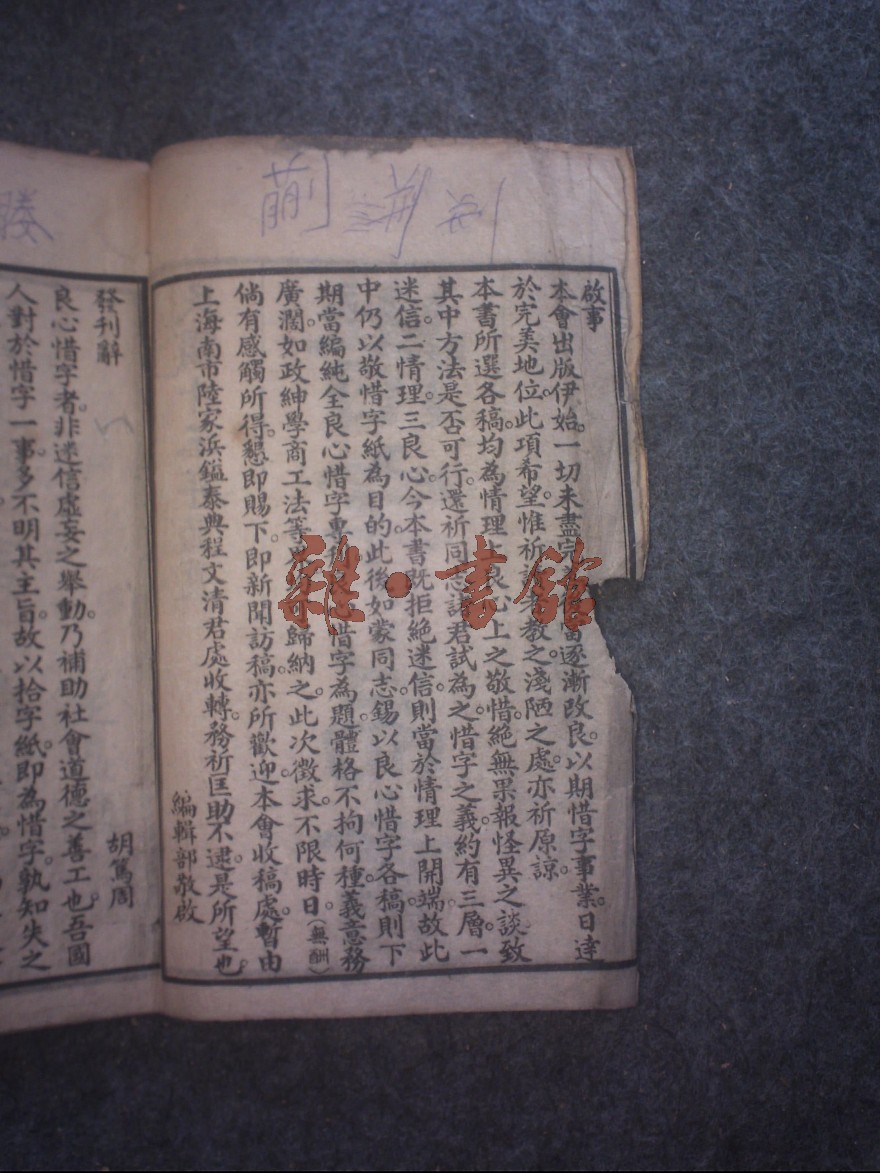 啟事
本會出版伊始。一切未盡完當逐漸改良。以期惜字事業。日達
於完美地位。此項希望。惟祈教之。淺陋之處。亦祈原諒。
本書所選各稿。均為情理良上之敬惜。絕無果報怪異之談。致
其中方法。是否可行。還祈同志諸君試為之。惜字之義。約有三層。一
迷信。二情理。三良心。今本書既拒絕迷信。則當於情理上開端。故此
中仍以敬惜字紙為目的。此後如蒙同志錫以良心惜字各稿。則下
期當編純全良心惜字專惜字為題。體格不拘何種。義意務
廣濶。如政紳學商工法等歸納之。此次徵求。不限時日。(無酬)
倘有感觸所得。懇即賜下。即新聞訪稿。亦所歡迎。本會收稿處。暫由
上海南市陸家浜鎰泰典程文清君處收轉。務祈匡助不逮。是所望也。
編輯部敬啟
發刊辭
胡篤周
良心惜字者。非迷信虛妄之舉動。乃補助社會道德之善工也。吾國
人對於惜字一事。多不明其主旨。故以拾字紙。即為惜字。孰知失之
雜·書館